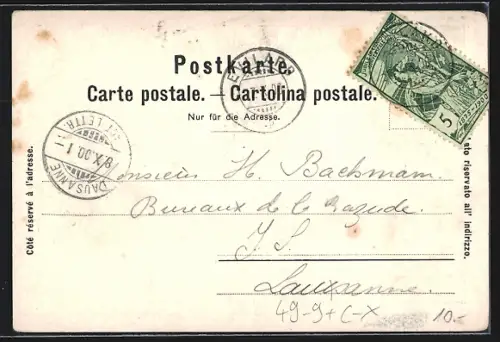 Postkarte.
Carte postale. — Cartolina postale.
Nur für die Adresse.
5
LAUSANNE
LETTR.
9.X.00.1
Côté réservé à l'adresse.
Lato riservato all' indirizzo.
Monsieur H. Bachmann.
Bureaux de la
J. S.
Lausanne.
49-9+C-X
10.-